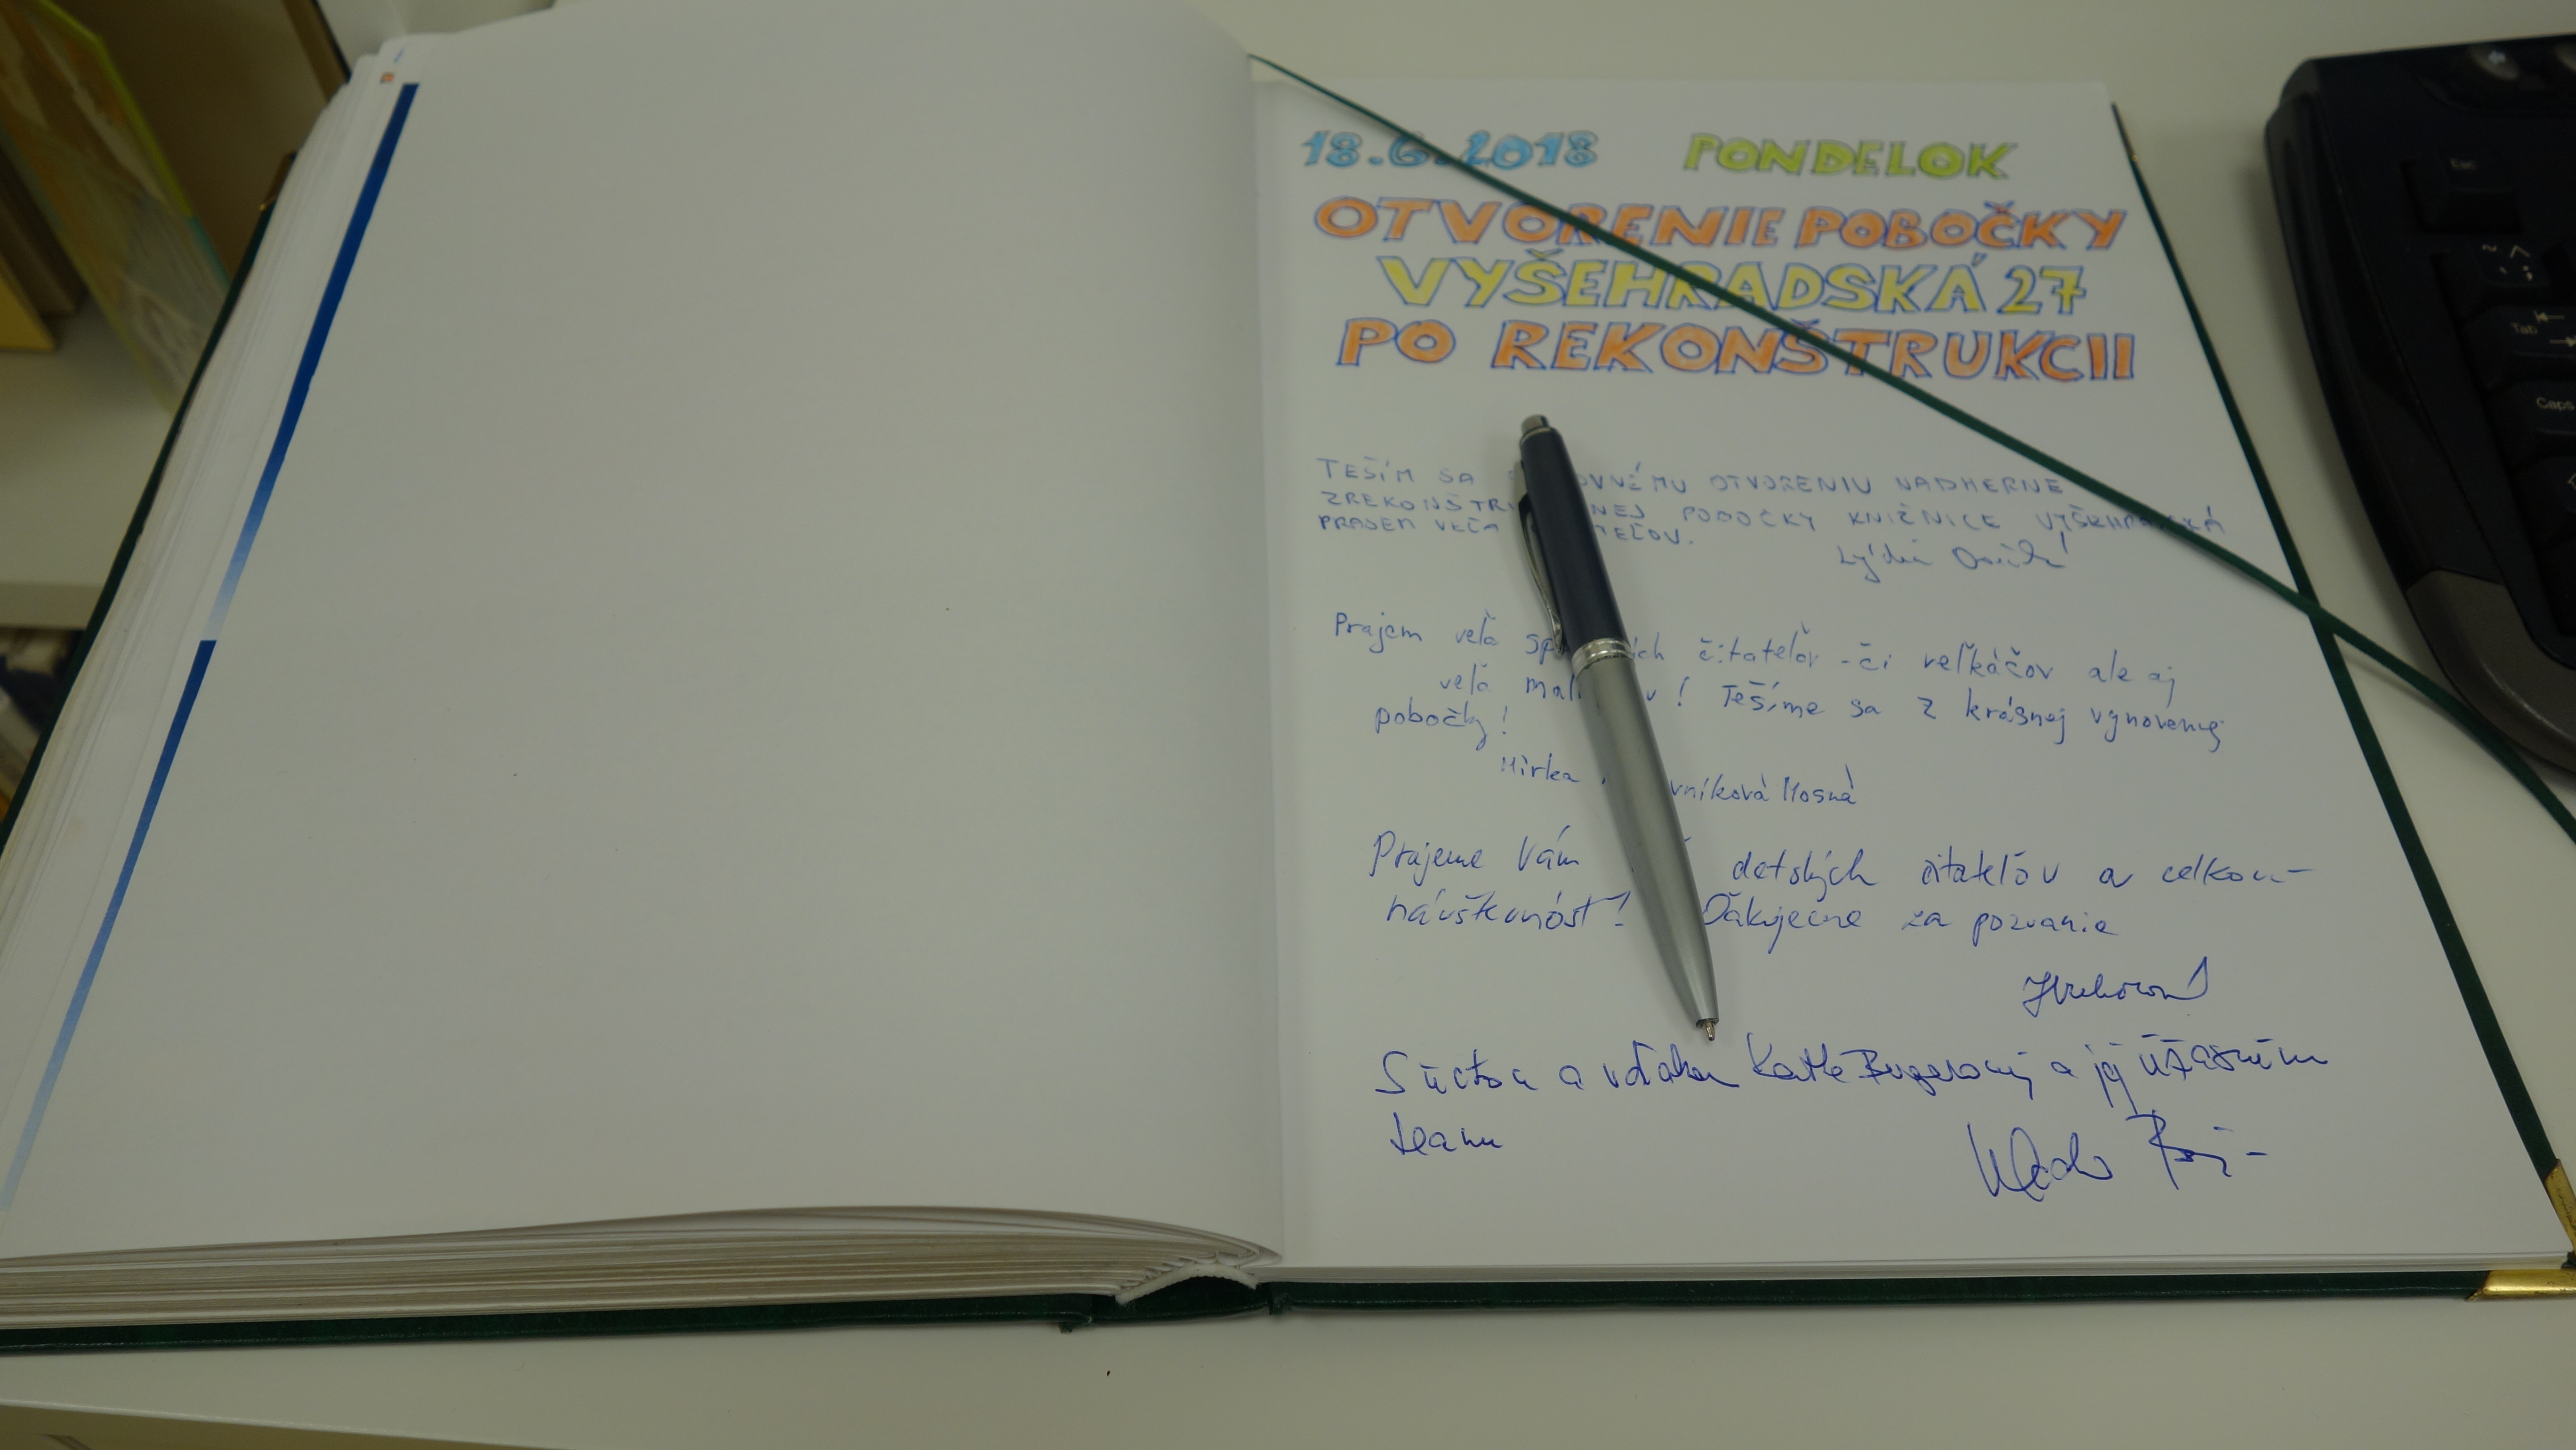 18.6.2018 PONDELOK
OTVORENIE POBOČKY
VYŠEHRADSKÁ 27
PO REKONŠTRUKCII
TEŠÍM SA OTVORENIU NADHERNE
POBOČKY KNIŽNICE VYŠEHRADSKÁ
PRAJEM VEĽA
Lýdia
Prajem veľa čitateľov - či veľkáčov ale aj
veľa ! Tešíme sa z krásnej vynovenej
pobočky!
Mirka Mosná
Prajeme Vám detských čitateľov a celkovú
návštevnosť! Ďakujeme za pozvanie
S úctou a vďakou Katke a jej úžasnému
teamu
Esc
Tab
Caps